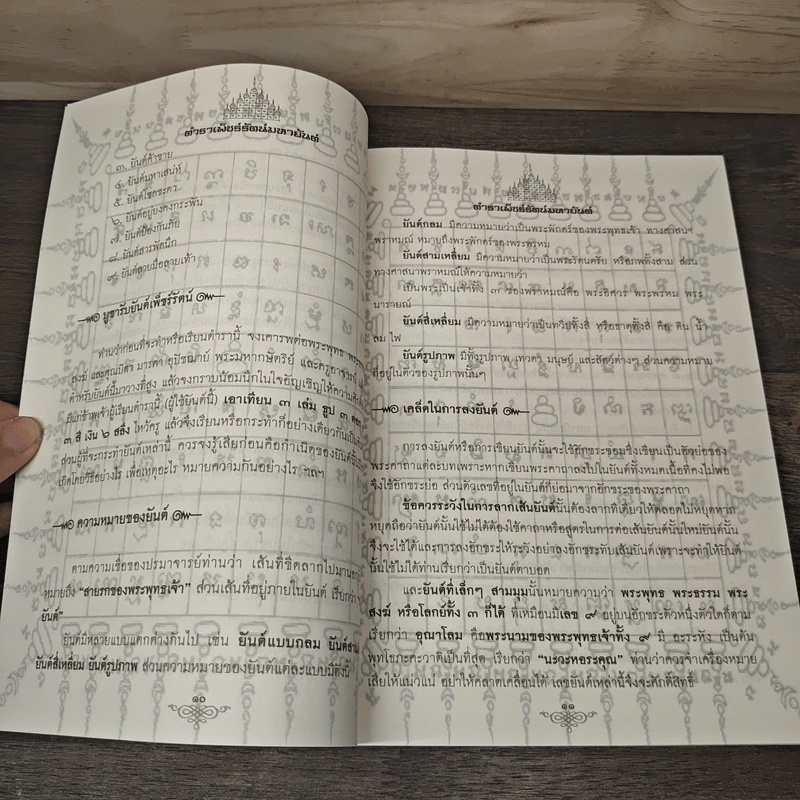 ตำราเพ็ชร์รัตน์มหายันต์
๓. ยันต์ค้าขาย
๔. ยันต์มหาเสน่ห์
๕. ยันต์โชคชะตา
๖. ยันต์อยู่ยงคงกระพัน
๗. ยันต์ป้องกันภัย
๘. ยันต์สารพัดนึก
๙. ยันต์ลายมือลายเท้า
บูชารับยันต์เพ็ชร์รัตน์
ท่านว่าก่อนที่จะทำหรือเรียนตำรานี้ จงเคารพต่อพระพุทธ
สงฆ์ และคุณบิดา มารดา อุปัชฌาย์ พระมหากษัตริย์ และครูอาจารย์
ตำหรับยันต์นี้มาวางที่สูง แล้วจงกราบน้อมนึกในใจอัญเชิญให้ความ
มีแก่ข้าพเจ้าผู้เรียนตำรานี้ (ผู้ใช้ยันต์นี้) เอาเทียน ๓ เล่ม ธูป ๓ ดอก
๓ สี เงิน ๒ สลึง ไหว้ครู แล้วจึงเรียนหรือกระทำก็อย่างเดียวกัน
ส่วนผู้ที่จะกระทำยันต์เหล่านี้ ควรจงรู้เสียก่อนคือกำเนิดของยันต์นั้น
เกิดโดยวิธีอย่างไร เพื่อเหตุอะไร หมายความกันอย่างไร ฯลฯ
ความหมายของยันต์
ตามความเชื่อของปรมาจารย์ท่านว่า เส้นที่ขีดลากไปมา
หมายถึง "สายรกของพระพุทธเจ้า" ส่วนเส้นที่อยู่ภายในยันต์ เรียกว่า
ยันต์"
ยันต์มีหลายแบบแตกต่างกันไป เช่น ยันต์แบบกลม ยันต์สาม
ยันต์สี่เหลี่ยม ยันต์รูปภาพ ส่วนความหมายของยันต์แต่ละแบบมีดังนี้
๑๐
ตำราเพ็ชร์รัตน์มหายันต์
ยันต์กลม มีความหมายว่าเป็นพระพักตร์ของพระพุทธเจ้า ทางศาสนา
พราหมณ์ หมายถึงพระพักตร์ของพระพรหม
ยันต์สามเหลี่ยม มีความหมายว่าเป็นพระรัตนตรัย หรือภพทั้งสาม ส่วน
ทางศาสนาพราหมณ์ให้ความหมายว่า
เป็นพระเป็นเจ้าทั้ง ๓ ของพราหมณ์คือ พระอิศวร พระพรหม พระ
นารายณ์
ยันต์สี่เหลี่ยม มีความหมายว่าเป็นทวีปทั้งสี่ หรือธาตุทั้งสี่ คือ ดิน น้ำ
ลม ไฟ
ยันต์รูปภาพ มีทั้งรูปภาพ เทวดา มนุษย์ และสัตว์ต่างๆ ส่วนความหมาย
ที่อยู่ในตัวของรูปภาพนั้นๆ
เคล็ดในการลงยันต์
การลงยันต์หรือการเขียนยันต์นั้นจะใช้อักขระขอมซึ่งเขียนเป็นตัวย่อของ
พระคาถาแต่ละบทเพราะหากเขียนพระคาถาลงไปในยันต์ทั้งหมดเนื้อที่คงไม่พอ
จึงใช้อักขระย่อ ส่วนตัวเลขที่อยู่ในยันต์ก็ย่อมาจากอักขระของพระคาถา
ข้อควรระวังในการลากเส้นยันต์นั้นต้องลากทีเดียวให้ตลอดไม่หยุดหาก
หยุดถือว่ายันต์นั้นใช้ไม่ได้ต้องใช้คาถาหรือสูตรในการต่อเส้นยันต์นั้นใหม่ยันต์นั้น
จึงจะใช้ได้และการลงอักขระให้ระวังอย่าลงอักขระทับเส้นยันต์เพราะจะทำให้ยันต์
นั้นใช้ไม่ได้ท่านเรียกว่าเป็นยันต์ตาบอด
และยันต์ที่เล็กๆ สามมุมนั้นหมายความว่า พระพุทธ พระธรรม พระ
สงฆ์ หรือโลกย์ทั้ง ๓ ก็ได้ ที่เหมือนมีเลข ๙ อยู่บนอักขระตัวหนึ่งตัวใดก็ตาม
เรียกว่า อุณาโลม คือพระนามของพระพุทธเจ้าทั้ง ๙ มี อะระหัง เป็นต้น
พุทโธภะคะวาติเป็นที่สุด เรียกว่า "นะวะหอระคุณ" ท่านว่าควรจำเครื่องหมาย
เสียให้แน่วแน่ อย่าให้คลาดเคลื่อนได้ เลขยันต์เหล่านี้จึงจะศักดิ์สิทธิ์
๑๑